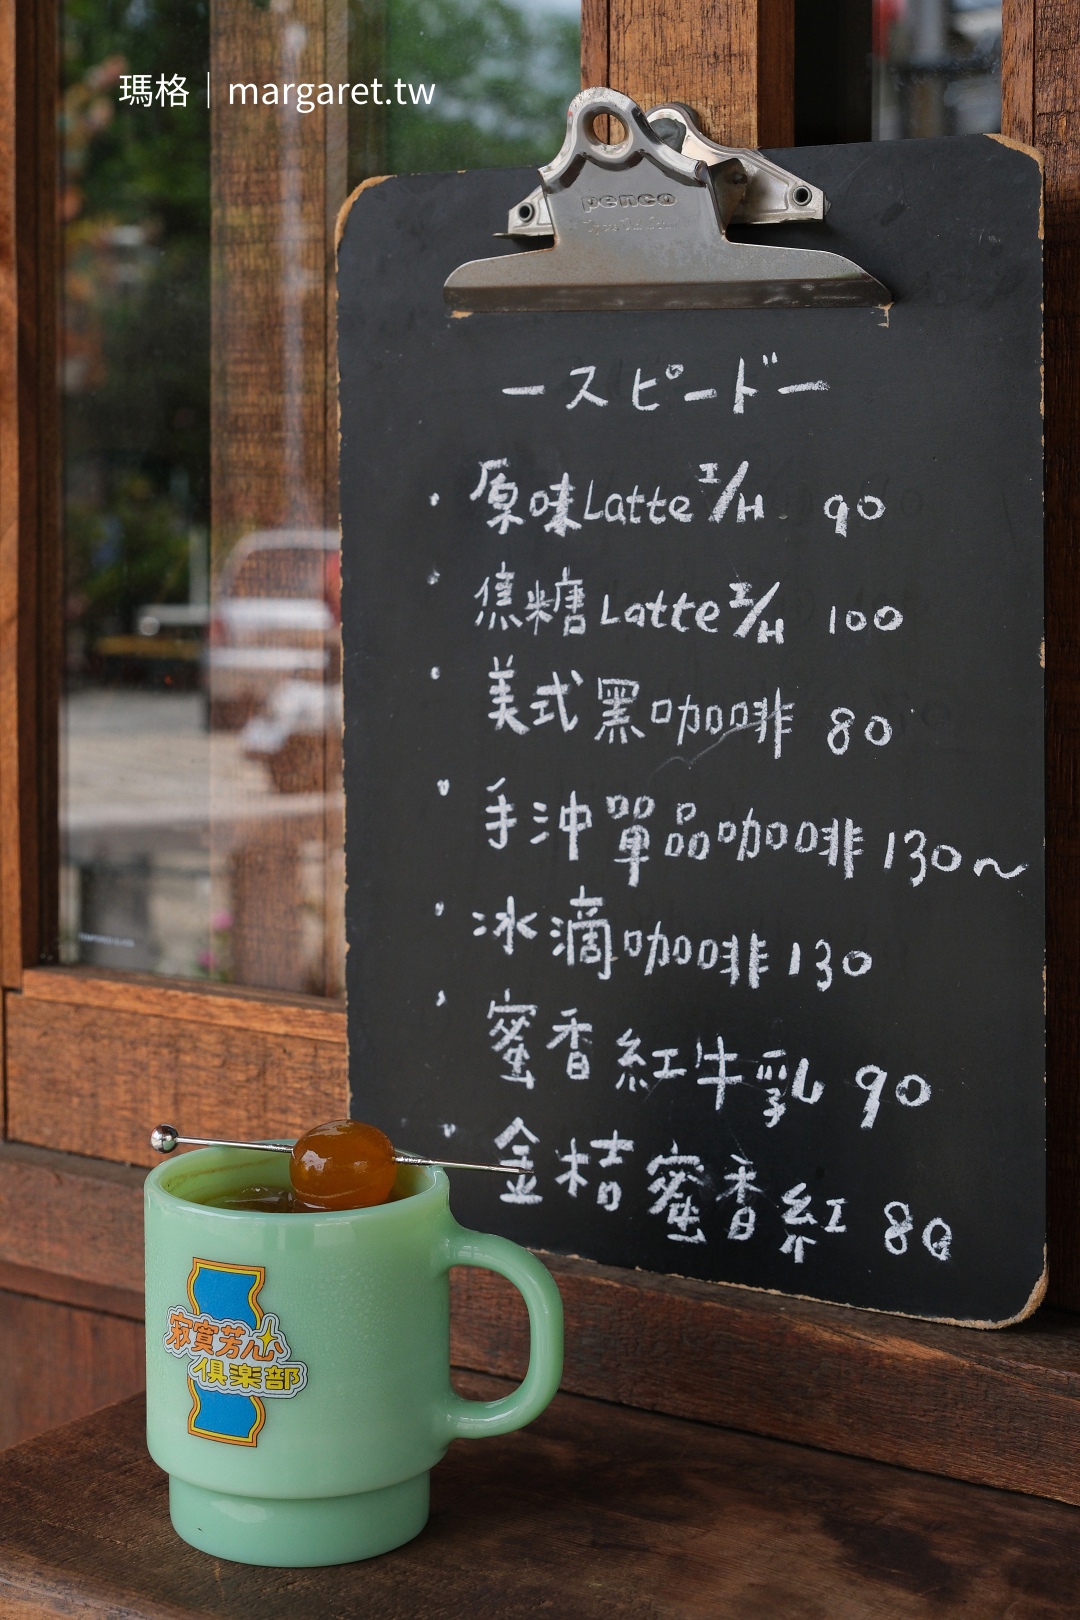 瑪格｜margaret.tw
penco
ースピードー
・原味Latte I/H 90
・焦糖Latte I/H 100
・美式黑咖啡 80
・手沖單品咖啡 130~
・冰滴咖啡 130
・蜜香紅牛乳 90
・金桔蜜香紅 80
寂寞芳心
俱楽部